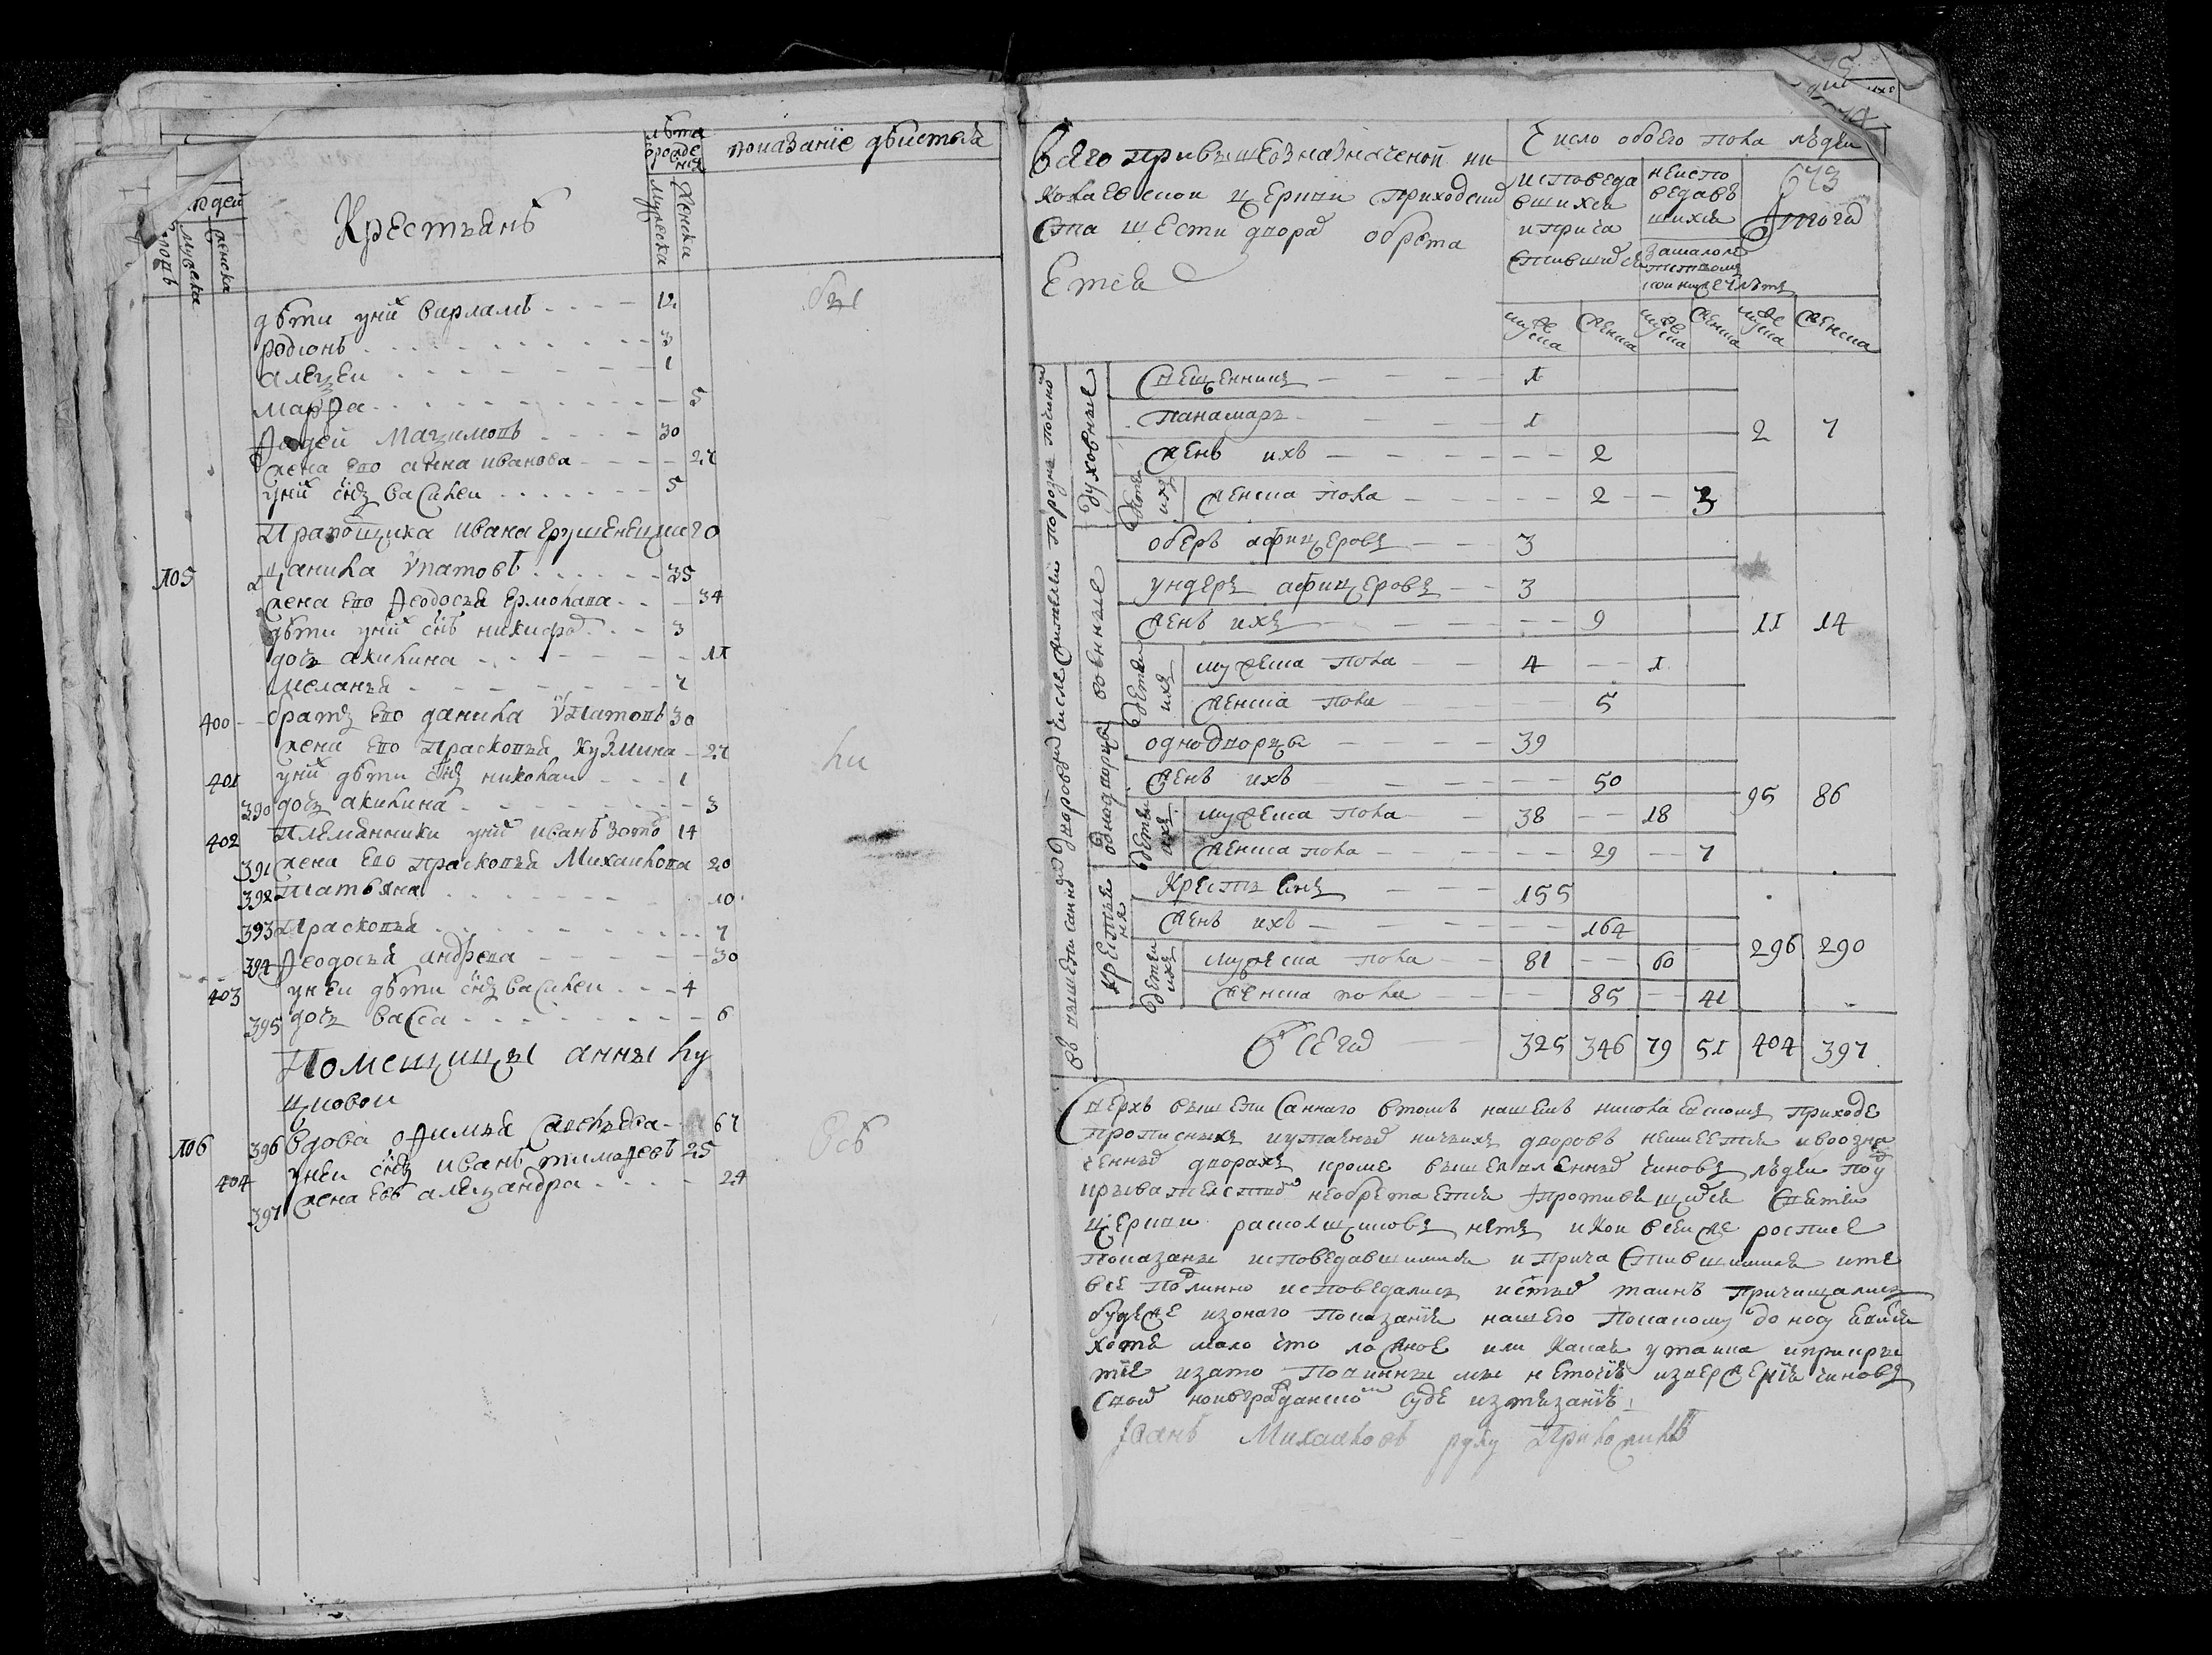 людей
дворовъ
мужеска
женска
Крестьянѣ
лѣта
мужеска
женска
показанïе дѣиства
дѣти у них варламъ 12
родионъ 3
алеѯеи 1
марѳа 5
Авдеи Маѯимовъ 30
жена ево анна иванова 27
у них снъ василеи 5
Прапощика ивана
105 данила Ѵпатовъ 35
жена ево Ѳеодосья ермолава 34
дѣти у них снъ никифо 3
дочь акилина 11
меланья 7
400 братъ ево данила Ѵпатовъ 30
жена ево Прасковья Кузмина 27
401 у них дѣти снъ николаи 1
390 дочь акилина 3
402 Племянники у них иванъ зото 14
391 жена ево прасковья Михаилова 20
392 татьяна 10
393 Прасковья 7
394 Ѳеодосья андреева 30
403 у неи дѣти снъ василеи 4
395 дочь васса 6
Помещицы анны лу
цковои
106 396 вдова офимья савельева 67
404 у неи снъ иванъ тимоѳеевъ 25
397 жена евѣ алеѯандра 24
всего при вышеозназначеной ни
колаевскои церкви приходски
ста шести двора обрета
етса
Число обоего пола людеи
исповеда
вшихся
и прича
стивших ся
неиспо
ведавъ
шихся
за малолѣ
673
Итого
муже
ска
женска
муже
ска
женска
муже
ска
женска
духовные
Священникъ 1
Панамарь 1
женъ ихъ 2
детеи
ихъ
женска пола 2 3
2 7
военные
оберъ афицеровъ 3
ундеръ афицеровъ 3
женъ ихъ 9
детеи
ихъ
мужеска пола 4 1
женска пола 5
11 14
однадворцы
однодворцы 39
женъ ихъ 50
детеи
ихъ
мужеска пола 38 18
женска пола 29 7
95 86
крестья
не
Крестьянъ 155
женъ ихъ 164
детеи
ихъ
мужеска пола 81 60
женска пола 85 41
296 290
Всего 325 346 79 51 404 397
Сверхъ вышеписаннаго втомъ нашемъ николаевскомъ приходе
прописныхъ и утаеных ничьихъ дворовъ неимеетца и воозна
ченных дворахъ кроме вышеявленных чиновъ людеи под
необретаетца и противящихся святеи
церкви раскольщиковъ нетъ и кои в сеи же росписе
показаны исповедавшимися и причастившимися и те
все подлинно исповедались и стых таинъ причищались
буде же изонаго показанïя нашего покакому доносу явится
хотя мало что ложное или какая утаика и прикры
тïе и зато повинны мы неточïю извержению чиновъ
своих но и в гражданском суде изтязанïю
Иванъ Михаиловъ руку Приложилъ